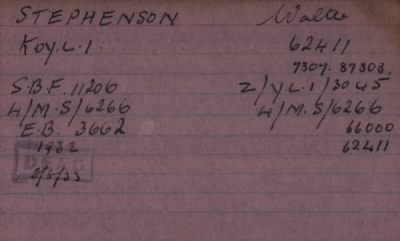 STEPHENSON Walter
Koy.L.I. 62411
7307. 37303.
S.B.F. 11206 2/Y.L.I/3045
4/M.S/6266 4/M.S/6266
E.B. 3662 66000
1932 62411
DEAD
2/8/33